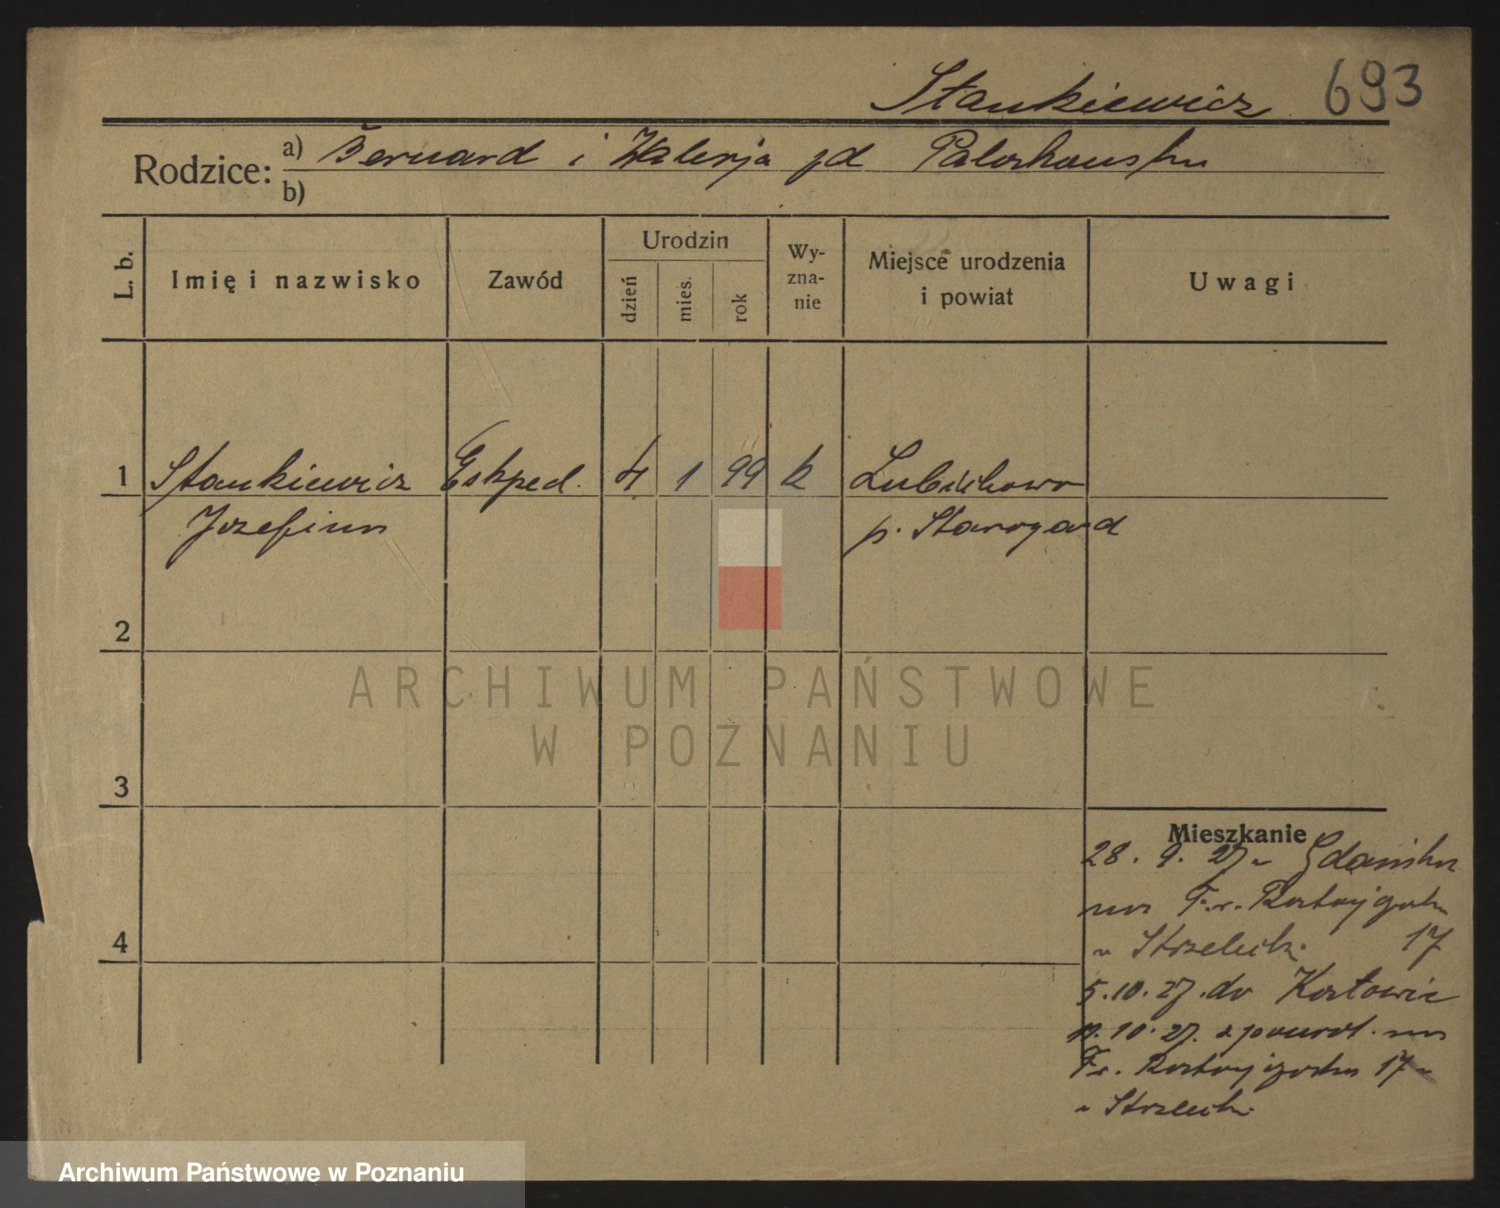 Stankiewicz 693
Rodzice: a) Bernard i Walerja
b)
L. b.
Imię i nazwisko
Zawód
Urodzin
dzień
mies.
rok
Wy-
zna-
nie
Miejsce urodzenia
i powiat
Uwagi
1 Stankiewicz Eksped. 4 1 99 k Lubichowo
Jozefina p. Starogard
2
3
4
Mieszkanie
28. 9. 27 Gdańska
na Fr. Ratajczaka
u Strzelecki 17
5.10.27. do Katowic
10. 27. z powrot. na
Fr. Ratajczaka 17
u Strzelecki
ARCHIWUM PAŃSTWOWE
W POZNANIU
Archiwum Państwowe w Poznaniu